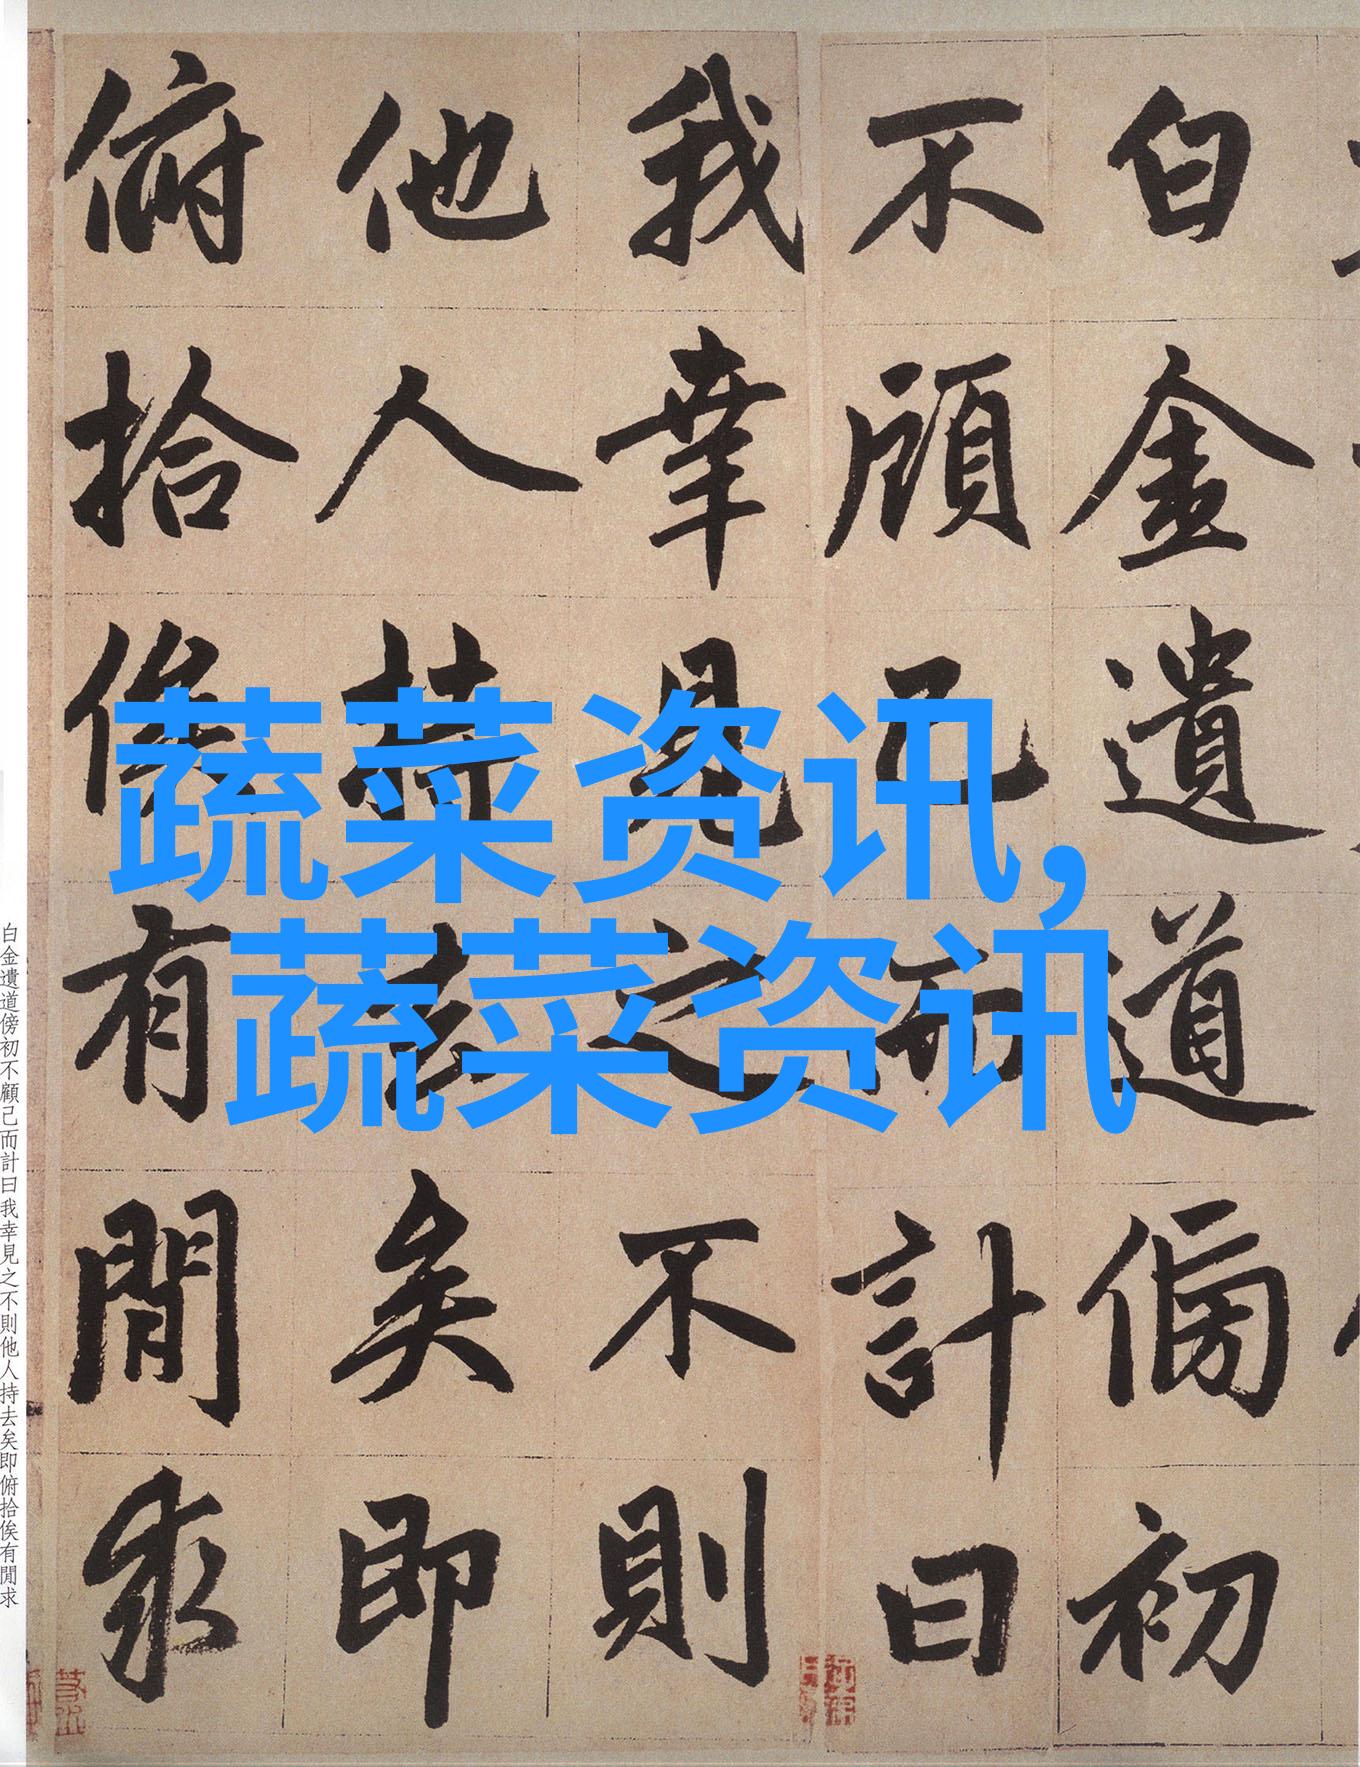 白金遺道傍初
不顧己而計曰
我幸見之不則
他人持去矣即
俯拾俟有閒求
蔬菜资讯,
蔬菜资讯
白金遺道傍初不顧己而計曰我幸見之不則他人持去矣即俯拾俟有閒求